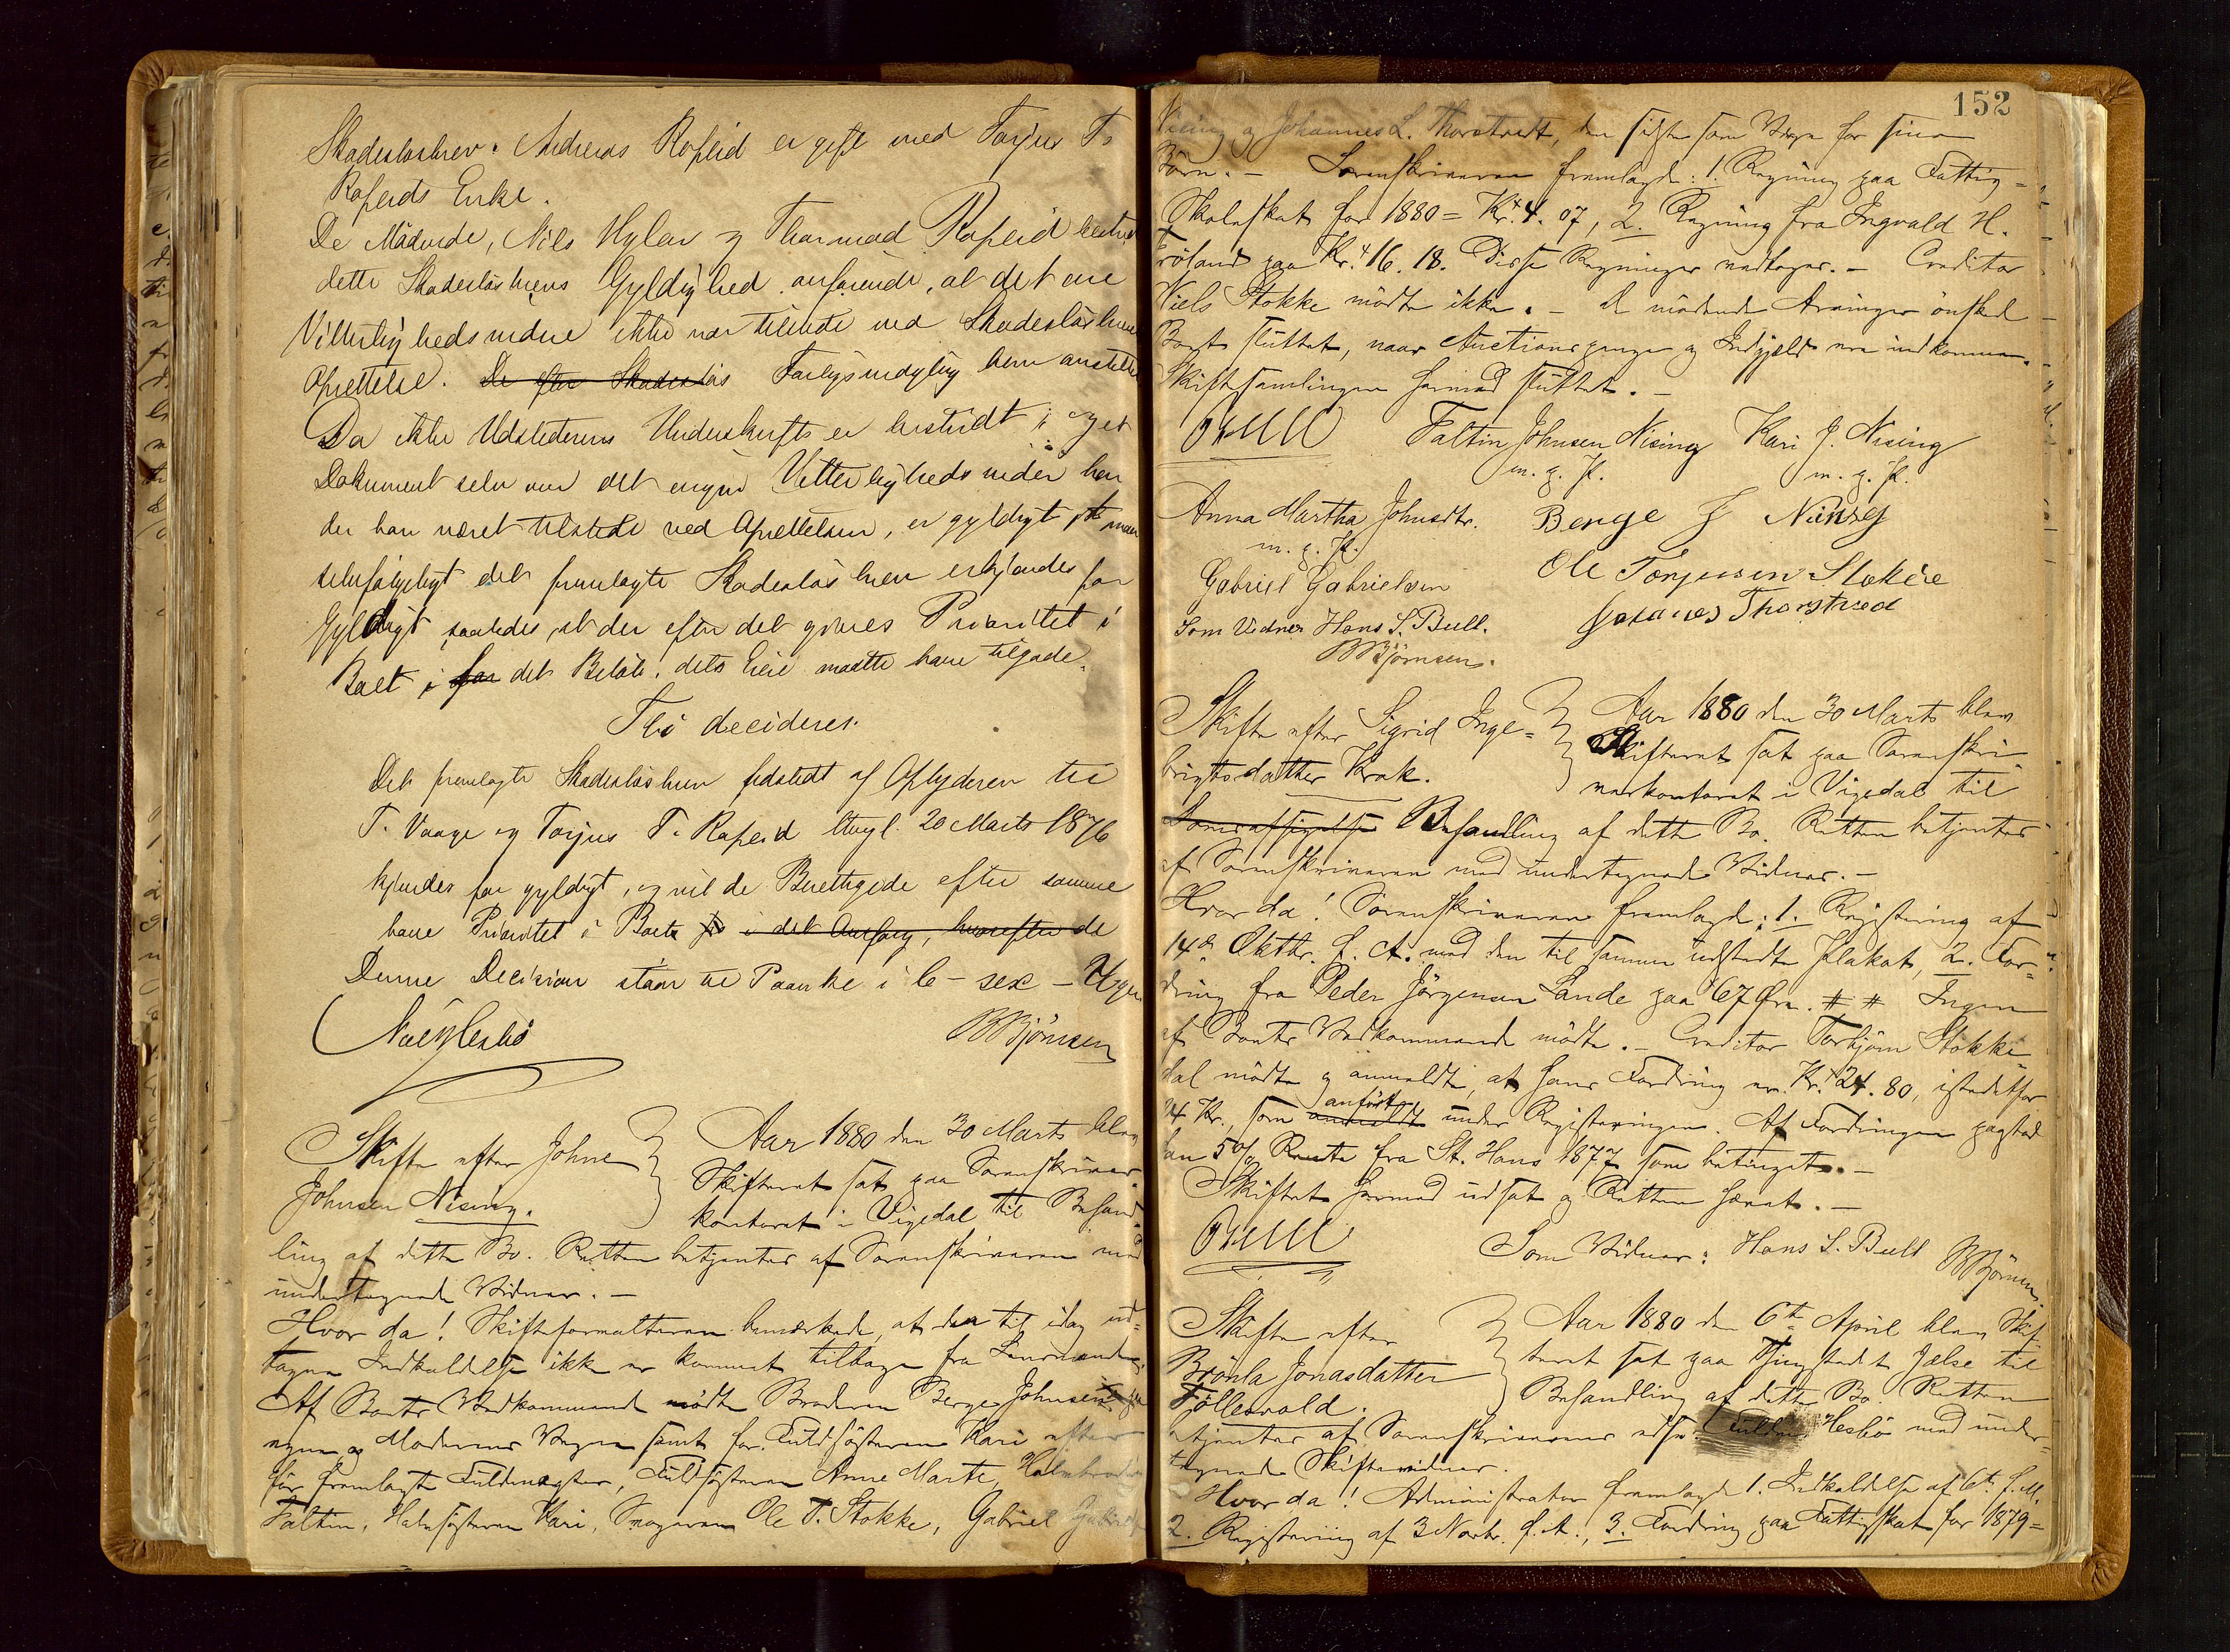 Skadesløsbrev. Andreas Ropeid er gift med Torjus T.
Ropeids Enke.
De Mødende, Nils Hylen og Thormod Ropeid bestred
dette Skadesløsbrevs Gyldighed anførende, at det ene
Vitterlighedsvidne ikke var tilstede ved Skadesløsbrevets
Oprettelse. De efter Skadesløs Forligsmægling blev anstillet
Da ikke Udstederens Underskrift er bestridt, og et
Dokument selv om det ingen Vitterlighedsvidner har
der har været tilstede ved Oprettelsen, er gyldigt, maa
selvfølgeligt det fremlagte Skadesløsbrev erkjendes for
Gyldigt saaledes, at der efter det gives Prioritet i
Boet i for det Beløb, dets Eier maatte have tilgode.
Thi decideres:
Det fremlagte Skadesløsbrev udstedt af Opbyderen til
T. Vaage og Torjus T. Ropeid thgl. 20 Marts 1876
kjendes for gyldigt, og vil de Berettigede efter samme
have Prioritet i Boet i det Omfang, hvorefter de
Denne Decision staar til Paanke i 6 - sex - Uger
BBjørnsen
Skifte efter Johne
Johnsen Nising.
Aar 1880 den 30 Marts blev
Skifteret sat paa Sorenskriver-
kontoret i Vigedal til Behand-
ling af dette Bo. Retten betjentes af Sorenskriveren med
undertegnede Vidner. -
Hvor da! Skifteforvalteren bemærkede, at den til idag ud-
tagne Indkaldelse ikke er kommet tilbage fra Lensmanden.
Af Boets Vedkommende mødte Broderen Berge Johnsen
egne og Moderens Vegne samt for Fuldsøsteren Kari efter
før fremlagte Fuldmagter, Fuldsøsteren Anne Marte, Halvbroderen
Faltin, Halvsøsteren Kari, Svogeren Ole T. Stokke, Gabriel Gabrielsen
152
Nising og Johannes L. Thorstvedt, den sidste som Værge for sine
Børn. - Sorenskriveren fremlagde: 1. Regning paa Fattig-
Skoleskat for 1880 = Kr. 4. 07, 2. Regning fra Ingvald H.
Frøland paa Kr. 16. 18. Disse Regninger vedtoges. - Creditor
Niels Stokke mødte ikke. - De mødende Arvinger ønsked
Boet sluttet, naar Auctionspenge og Indgjæld ere indkomne.
Skiftesamlingen hermed sluttet. -
Faltin Johnsen Nising Kari J. Nising
m. p. P. m. p. P.
Anna Martha Johnsdtr. Berge J Nising
m. p. P.
Gabriel Gabrielsen Ole Torjussen Stokke
Som Vidner Hans S. Bull. Johanes Thorstved
BBjørnsen.
Skifte efter Sigrid Inge-
brigtsdatter Krak.
Aar 1880 den 30 Marts blev
Skifteret sat paa Sorenskri-
verkontoret i Vigedal til
Behandling af dette Bo. Retten betjentes
af Sorenskriveren med undertegnede Vidner. -
Hvor da! Sorenskriveren fremlagde: 1. Registering af
14de Oktbr. f. A. med den til samme udstedte Plakat, 2. For-
dring fra Peder Jørgensen Sande paa 67 Øre. # # Ingen
af Boets Vedkommende mødte. - Creditor Torbjørn Stokke-
dal mødte og anmeldte, at hans Fordring er Kr. 24. 80, istedetfor
24 Kr., som anmeldt anført under Registeringen. Af Fordringen paastod
han 5% Rente fra St. Hans 1877 som betinget. -
Skiftet hermed udsat og Retten hævet. -
Som Vidner: Hans S. Bull BBjørnsen.
Skifte efter
Brönla Jonasdatter
Follesvold.
Aar 1880 den 6te April blev Skif-
teret sat paa Thingstedet Jelse til
Behandling af dette Bo. Retten
betjentes af Sorenskriverens edsv. Fuldm. Hesbø med under-
tegnede Skiftevidner.
Hvor da! Administrator fremlagde 1. Indkaldelse af 6te f. M.
2. Registering af 3 Novbr. f. A., 3. Fordring paa Fattigskat for 1879 =